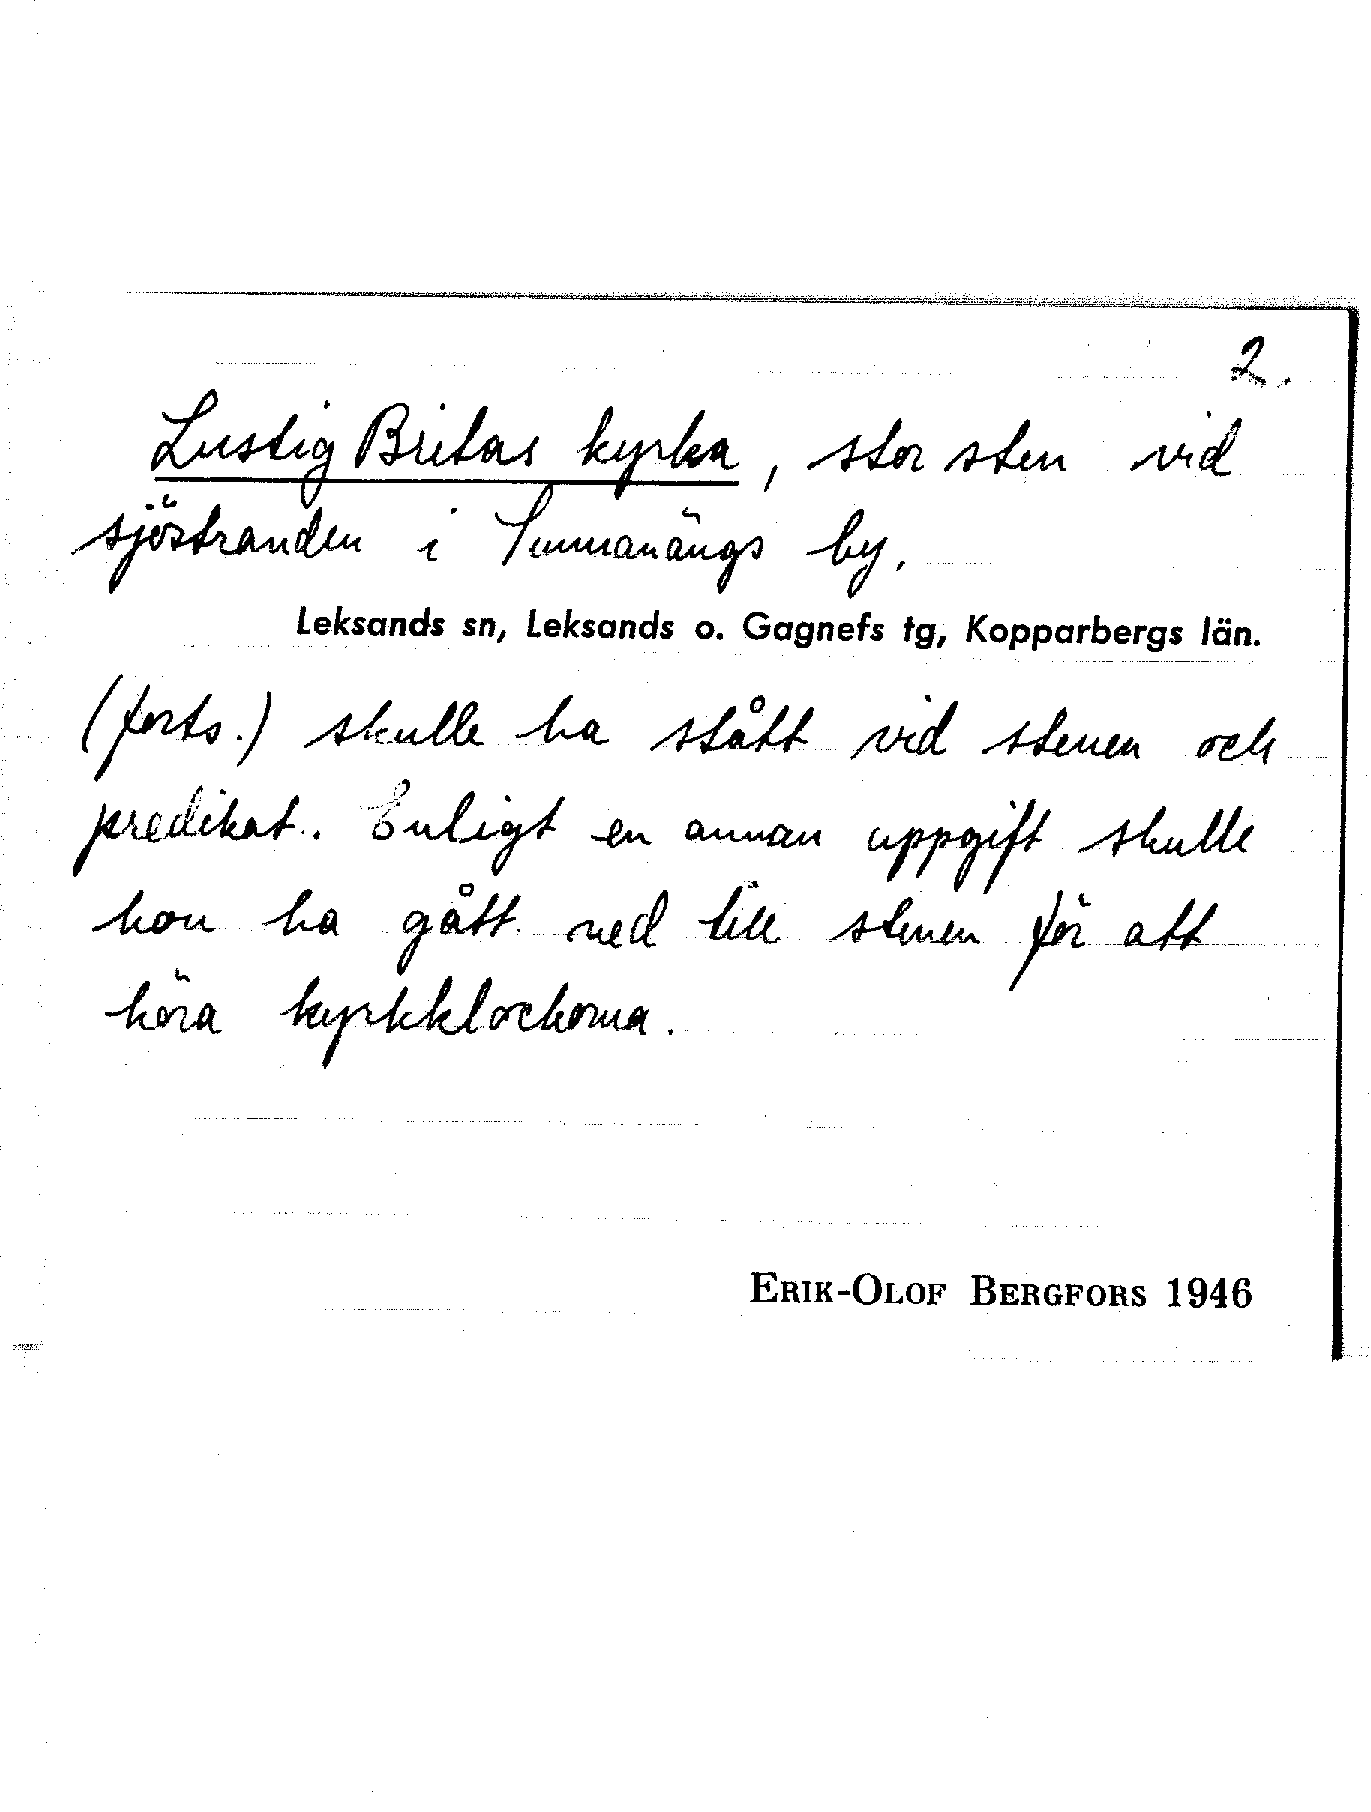 2.
Lustig Britas kyrka, stor sten vid
sjöstranden i Sunnanängs by.
Leksands sn, Leksands o. Gagnefs tg, Kopparbergs län.
(forts.) skulle ha stått vid stenen och
predikat. Enligt en annan uppgift skulle
hon ha gått ned till stenen för att
höra kyrkklockorna.
ERIK-OLOF BERGFORS 1946